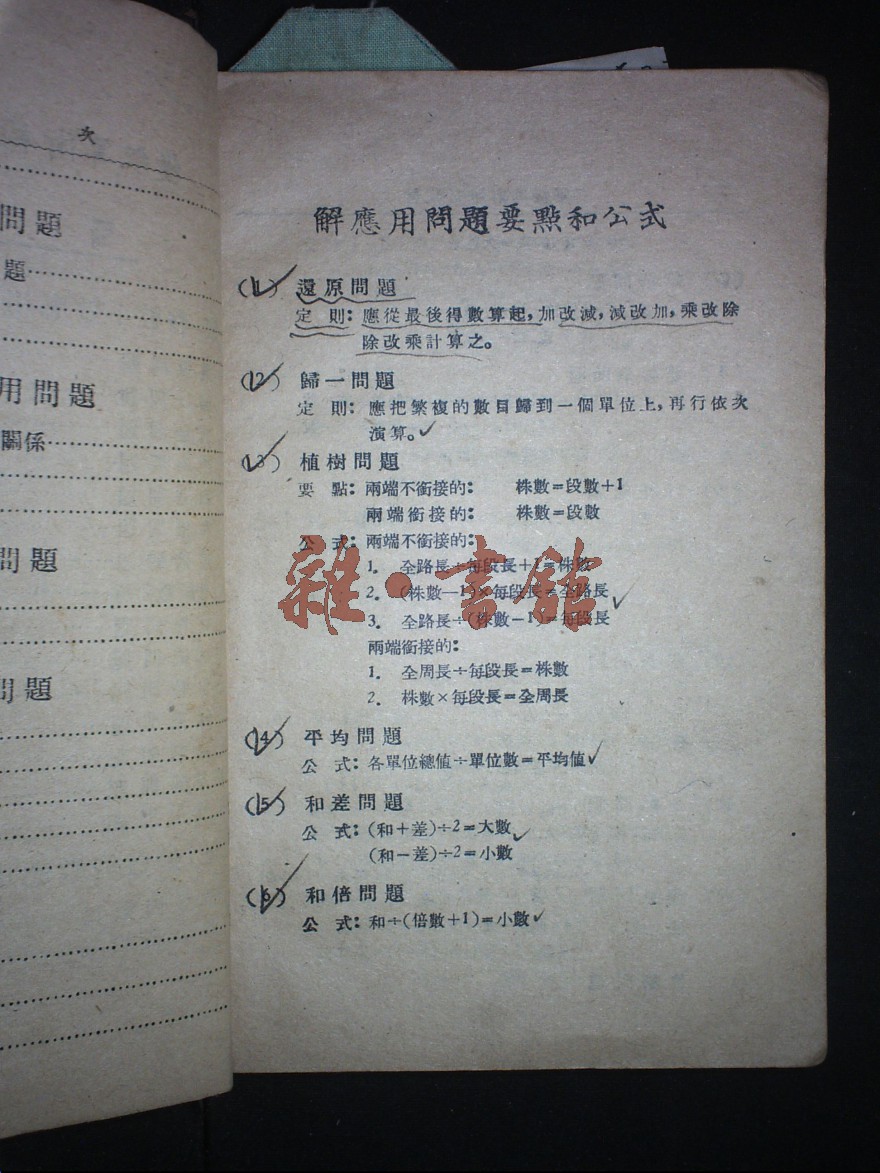 次
問題
題
用問題
關係
問題
問題
解應用問題要點和公式
(1) 還原問題
定則：應從最後得數算起，加改減，減改加，乘改除
除改乘計算之。
(2) 歸一問題
定則：應把繁複的數目歸到一個單位上，再行依次
演算。
(3) 植樹問題
要點：兩端不銜接的： 株數=段數+1
兩端銜接的： 株數=段數
公式：兩端不銜接的：
1. 全路長÷每段長+1=株數
2. (株數-1)×每段長=全路長
3. 全路長÷(株數-1)=每段長
兩端銜接的：
1. 全周長÷每段長=株數
2. 株數×每段長=全周長
(4) 平均問題
公式：各單位總值÷單位數=平均值
(5) 和差問題
公式：(和+差)÷2=大數
(和-差)÷2=小數
(6) 和倍問題
公式：和÷(倍數+1)=小數
雜·書館